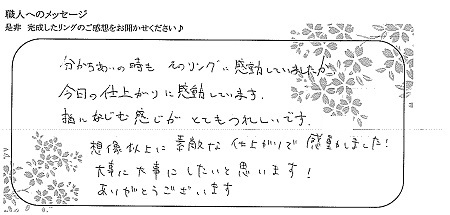 職人へのメッセージ
是非 完成したリングのご感想をお聞かせください♪
分かちあいの時も そのリングに感動していましたが、
今日の仕上がりに感動しています。
指になじむ感じが とてもうれしいです。
想像以上に 素敵な 仕上がりで 感動しました!
大事に 大事に したいと思います!
ありがとうございます